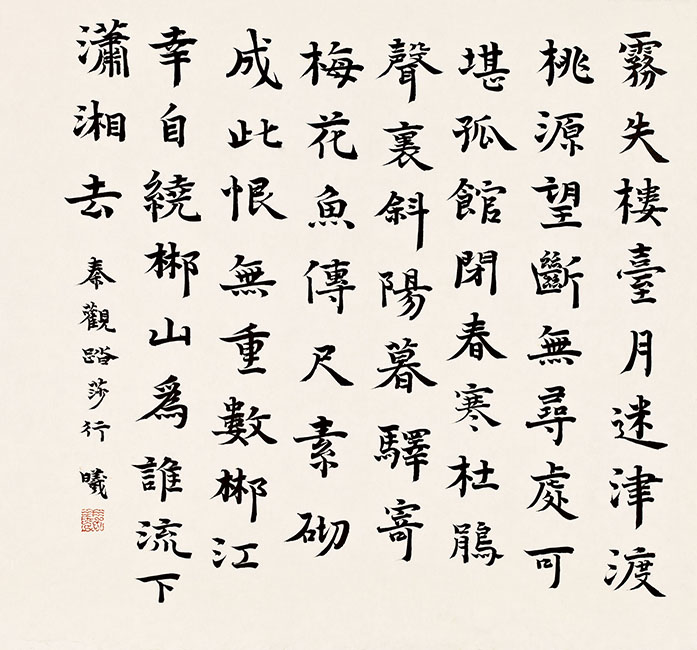 霧失樓臺月迷津渡
桃源望斷無尋處可
堪孤館閉春寒杜鵑
聲裏斜陽暮驛寄
梅花魚傳尺素砌
成此恨無重數郴江
幸自繞郴山爲誰流下
瀟湘去 秦觀踏莎行 曦